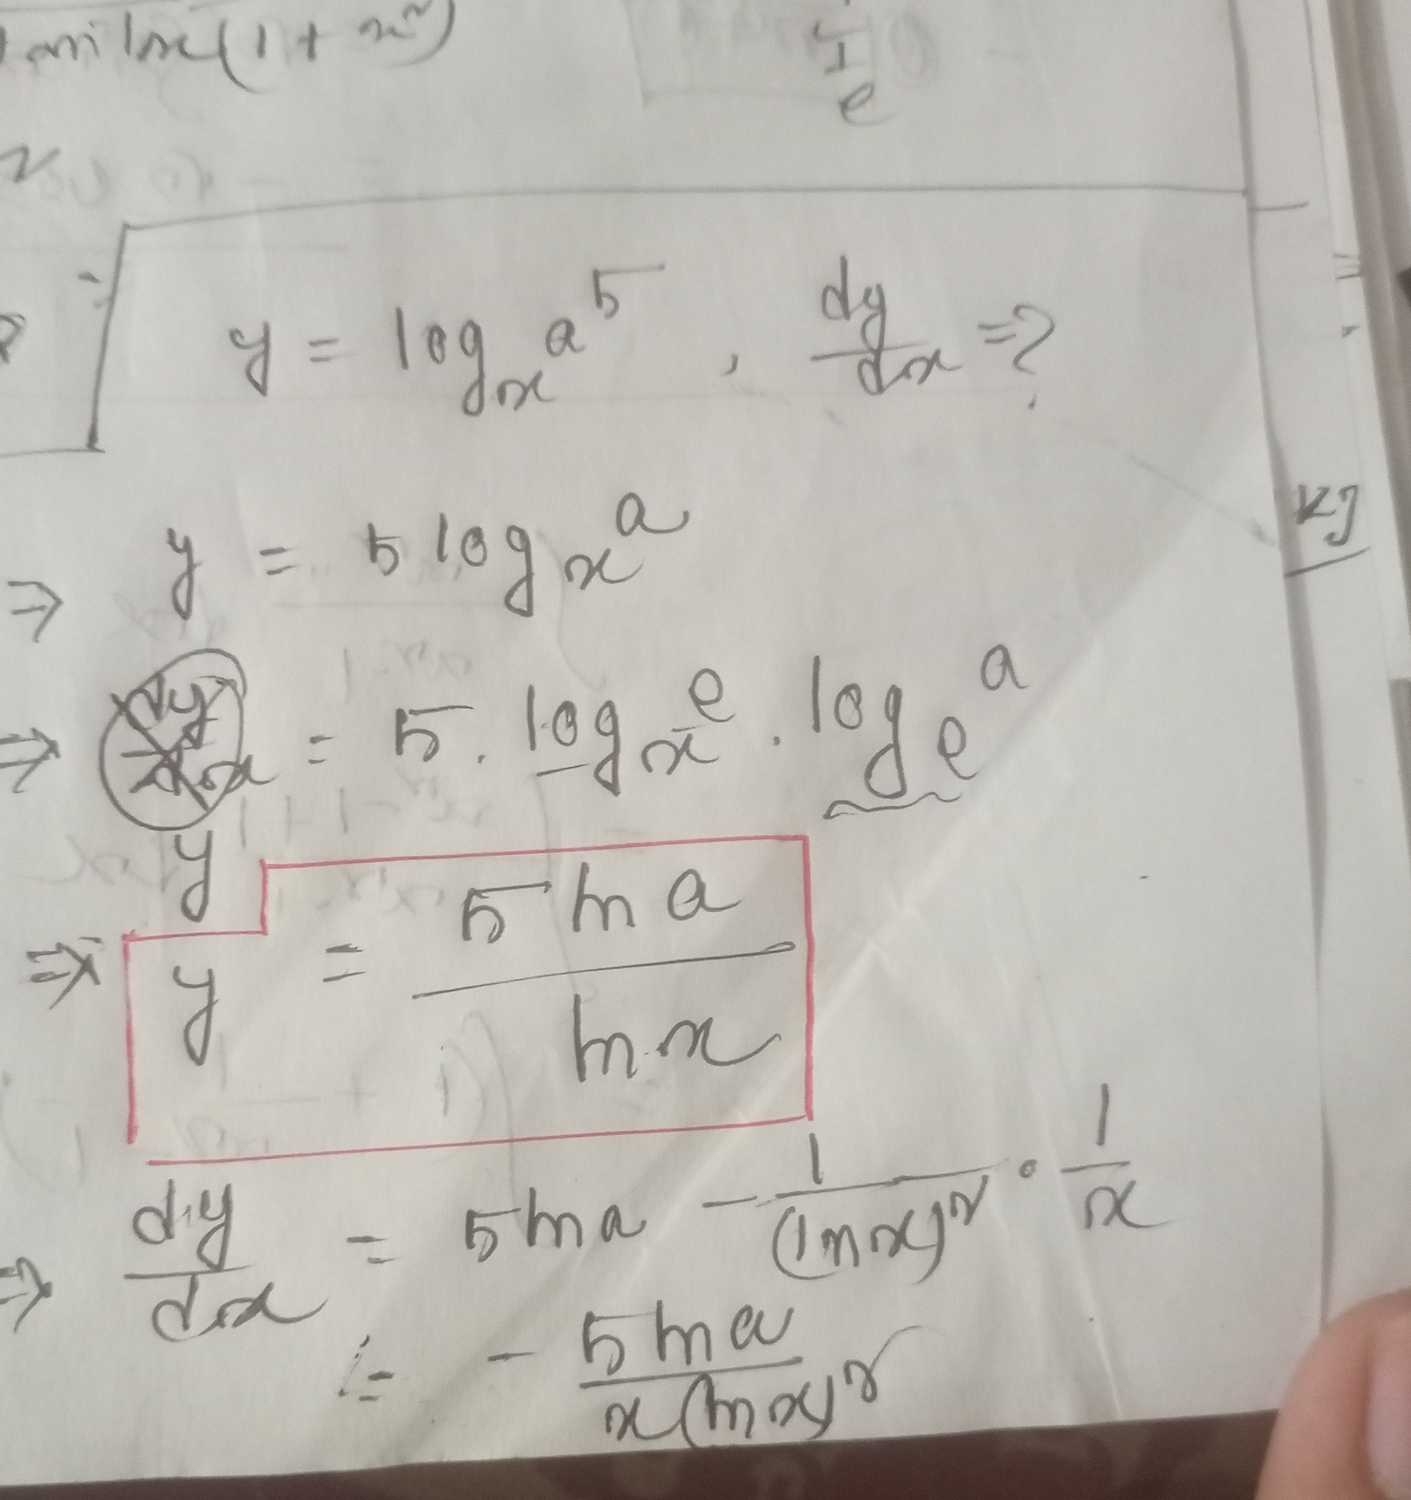 ln(1 + x²)
1/e
y = logₓ a⁵ , dy/dx =?
⇒ y = 5 logₓ a
KJ
⇒ dy/dx = 5 . logₓ e . logₑ a
y
⇒ y = 5 ln a / ln x
⇒ dy/dx = 5 ln a - 1/(ln x)² · 1/x
= - 5 ln a / x (ln x)²